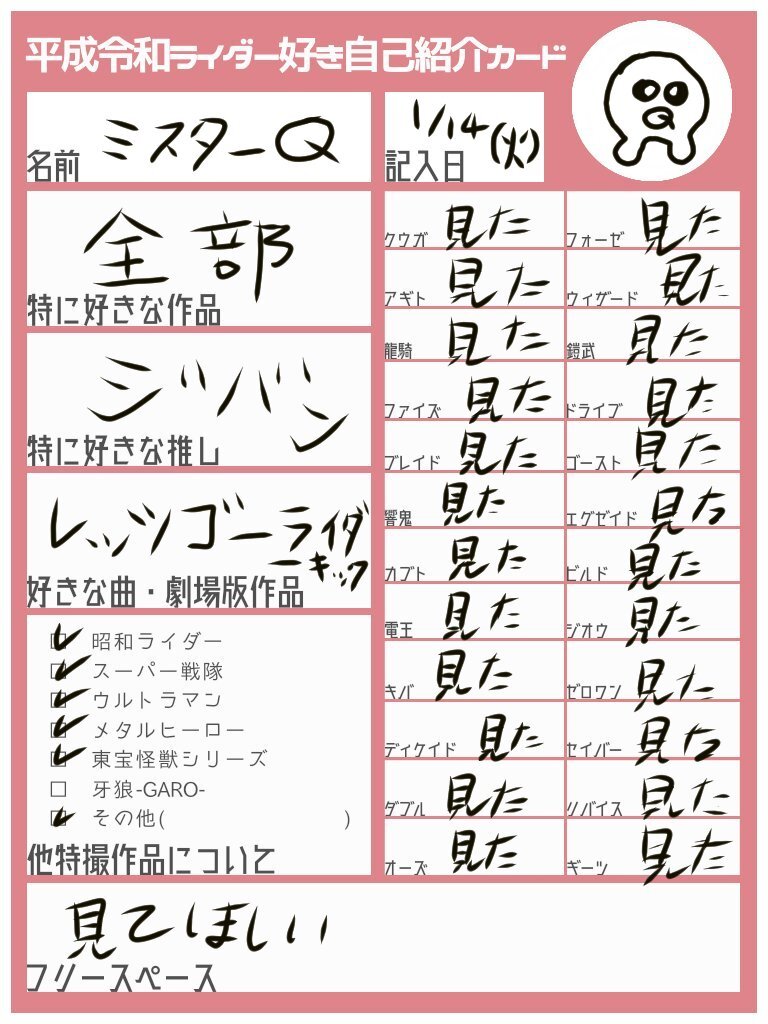 平成令和ライダー好き自己紹介カード
名前 ミスターQ
記入日 1/14(火)
Q
全部
特に好きな作品
ジバン
特に好きな推し
レッツゴーライダーキック
好きな曲・劇場版作品
昭和ライダー
スーパー戦隊
ウルトラマン
メタルヒーロー
東宝怪獣シリーズ
牙狼-GARO-
その他( )
他特撮作品について
クウガ 見た
アギト 見た
龍騎 見た
ファイズ 見た
ブレイド 見た
響鬼 見た
カブト 見た
電王 見た
キバ 見た
ディケイド 見た
ダブル 見た
オーズ 見た
フォーゼ 見た
ウィザード 見た
鎧武 見た
ドライブ 見た
ゴースト 見た
エグゼイド 見た
ビルド 見た
ジオウ 見た
ゼロワン 見た
セイバー 見た
リバイス 見た
ギーツ 見た
見てほしい
フリースペース